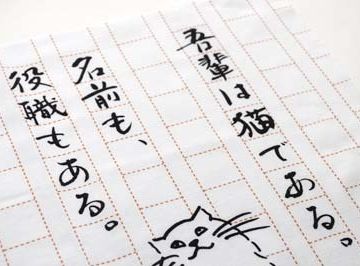 吾輩は猫である。
名前も、
役職もある。